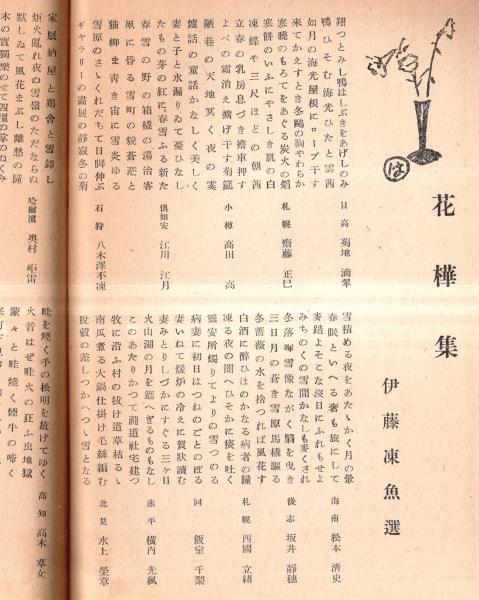 花樺集
伊藤凍魚選
は
翔つとみし鴨はしぶきをあげしのみ 日高 菊地 滴翠
鴨ひそむ海光ひたと雲茜
如月の海光屋根にロープ干す
来てかえすとき冬鷗の胸やわらか
寒暁のもろてをあぐる炭火の焰 札幌 齋藤 正巳
寒餅のいふにやさしき肌の白
凍蝶や三尺ほどの朝茜
立春の乳房息づき擔車押す
よべの霜消え擴げ干す菊筵 小樽 高田 高
陋巷の天地冥く夜の霙
爐話の童話かなしく美しく
妻と子と水漏りゐて憂ひなし
たもの芽の紅に春雪ふる新た 倶知安 江川 江月
春雪の野の箱橇の湯治客
凧に昏る雪町の貌蒼茫と
猫柳ま青き宙に雪炎ゆる
雪原のさゝくれだちて日脚伸ぶ 石狩 八木澤不凍
ギャラリーの畫展の靜寂冬の菊
納屋と鶏舎と雪卸し 哈爾濱 奥村
炬火亂れ夜の雪嶺のたゞならぬ
默しゐて風花まぶし離愁の瞳
雪積める夜をあたゝかく月の暈 海南 松本 清史
春眠といへる者も旅にして
麥踏よそこな沒日にふれもせよ
みちのくの雪間かなしも麥くされ
冬落暉雪像ながく翳を曳き 後志 坂井 靜穂
三日月の蒼き雪原馬橇驅る
冬薔薇の水を捨つれば風花す
白酒に醉ひほのかなる病者の瞳 札幌 西國 立緒
凍る夜の闇へひそかに痰を吐く
靈安所燭りてよりの雪つのる
病妻に初日はつねのごとのぼる 同 飯室 千梨
妻いねて煖炉の冷えに賀狀讀む
妻みとりしづかにすぐる三ヶ日
火山湖の月を遮へぎるものもなし 赤平 横内 光楓
このあたりかつて瀧道社宅建つ
牧に沿ふ村の抜け道草枯るゝ
南瓜煮る大鍋仕掛け毛絲編む 北見 水上 榮章
脱穀の差しつかへつゝ雪となる
畦を燒く手の松明を放げてゆく 高知 高木 草女
火音はぜ畦火の狂ふ虫地獄
濛々と畦燒く煙牛の啼く